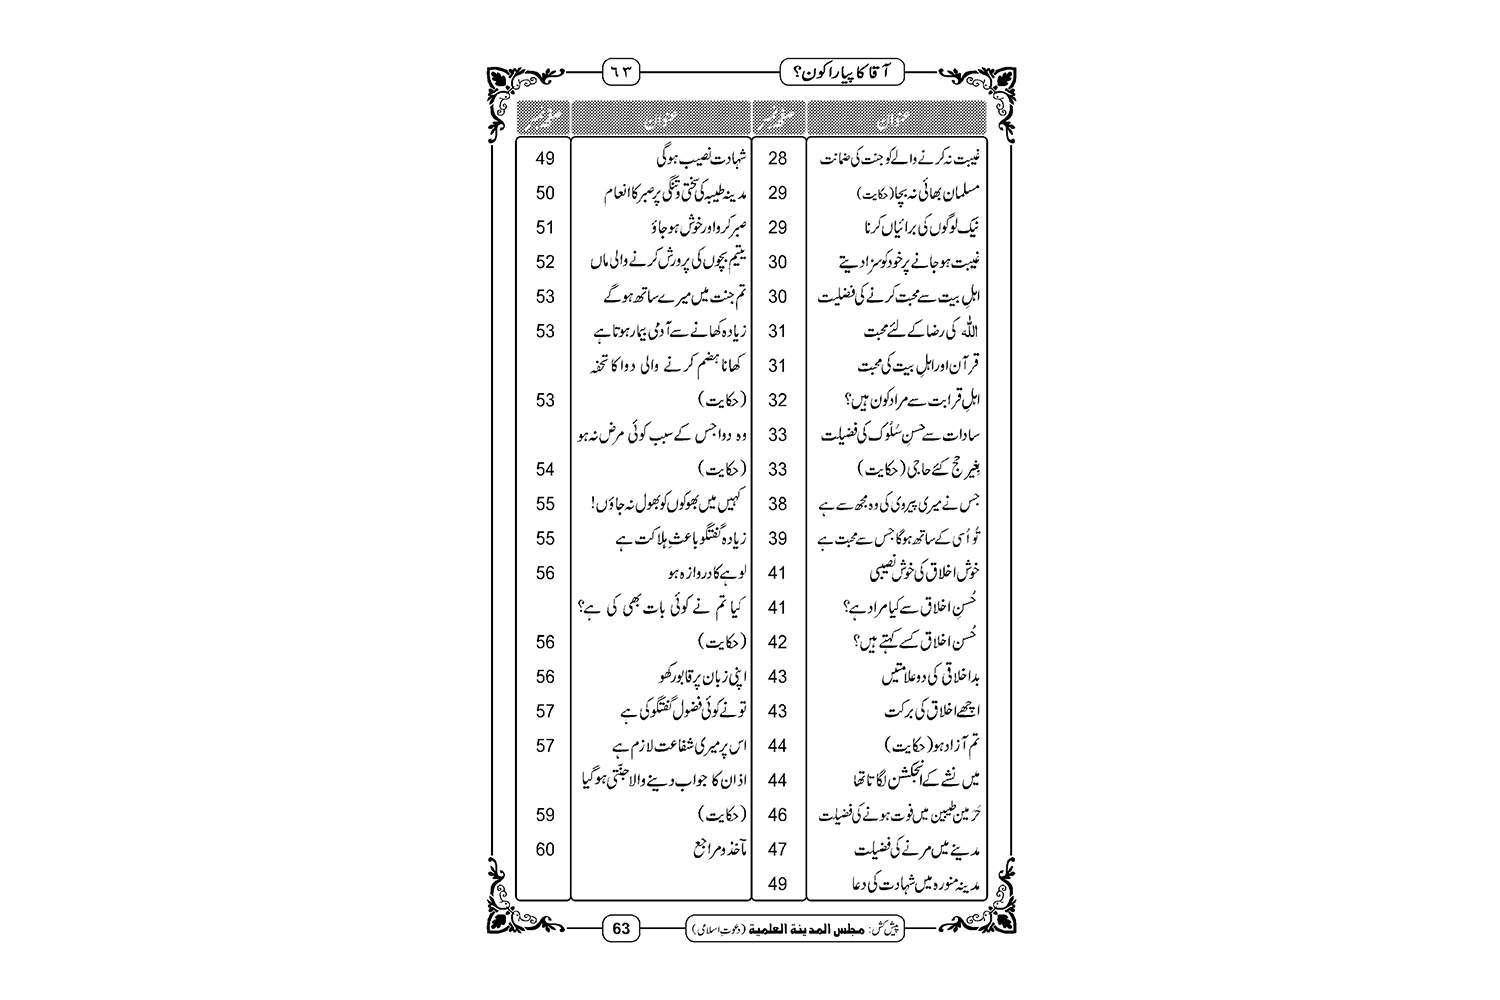 آقا کا پیارا کون؟ ٦٣
عنوان صفحہ نمبر عنوان صفحہ نمبر
غیبت نہ کرنے والے کو جنت کی ضمانت 28
مسلمان بھائی نہ بچا (حکایت) 29
نیک لوگوں کی برائیاں کرنا 29
غیبت ہوجانے پر خود کو سزا دیتے 30
اہلِ بیت سے محبت کرنے کی فضلیت 30
اللہ کی رضا کے لئے محبت 31
قرآن اور اہلِ بیت کی محبت 31
اہلِ قرابت سے مراد کون ہیں؟ 32
سادات سے حسنِ سُلُوک کی فضیلت 33
بغیر حج کئے حاجی (حکایت) 33
جس نے میری پیروی کی وہ مجھ سے ہے 38
تُو اُسی کے ساتھ ہوگا جس سے محبت ہے 39
خوش اخلاق کی خوش نصیبی 41
حُسنِ اخلاق سے کیا مراد ہے؟ 41
حُسن اخلاق کسے کہتے ہیں؟ 42
بداخلاقی کی دو علامتیں 43
اچھے اخلاق کی برکت 43
تم آزاد ہو (حکایت) 44
میں نشے کے انجکشن لگاتا تھا 44
حَرَمین طیبین میں فوت ہونے کی فضیلت 46
مدینے میں مرنے کی فضیلت 47
مدینہ منورہ میں شہادت کی دعا 49
شہادت نصیب ہوگی 49
مدینہ طیبہ کی سختی و تنگی پر صبر کا انعام 50
صبر کرو اور خوش ہوجاؤ 51
یتیم بچوں کی پرورش کرنے والی ماں 52
تم جنت میں میرے ساتھ ہوگے 53
زیادہ کھانے سے آدمی بیمار ہوتا ہے 53
کھانا ہضم کرنے والی دوا کا تحفہ
(حکایت) 53
وہ دوا جس کے سبب کوئی مرض نہ ہو
(حکایت) 54
کہیں میں بھوکوں کو بھول نہ جاؤں! 55
زیادہ گفتگو باعثِ ہلاکت ہے 55
لوہے کا دروازہ ہو 56
کیا تم نے کوئی بات بھی کی ہے؟
(حکایت) 56
اپنی زبان پر قابو رکھو 56
تو نے کوئی فضول گفتگو کی ہے 57
اس پر میری شفاعت لازم ہے 57
اذان کا جواب دینے والا جنّتی ہوگیا
(حکایت) 59
مآخذ و مراجع 60
پیش کش: مجلس المدينة العلمية (دعوتِ اسلامی) 63